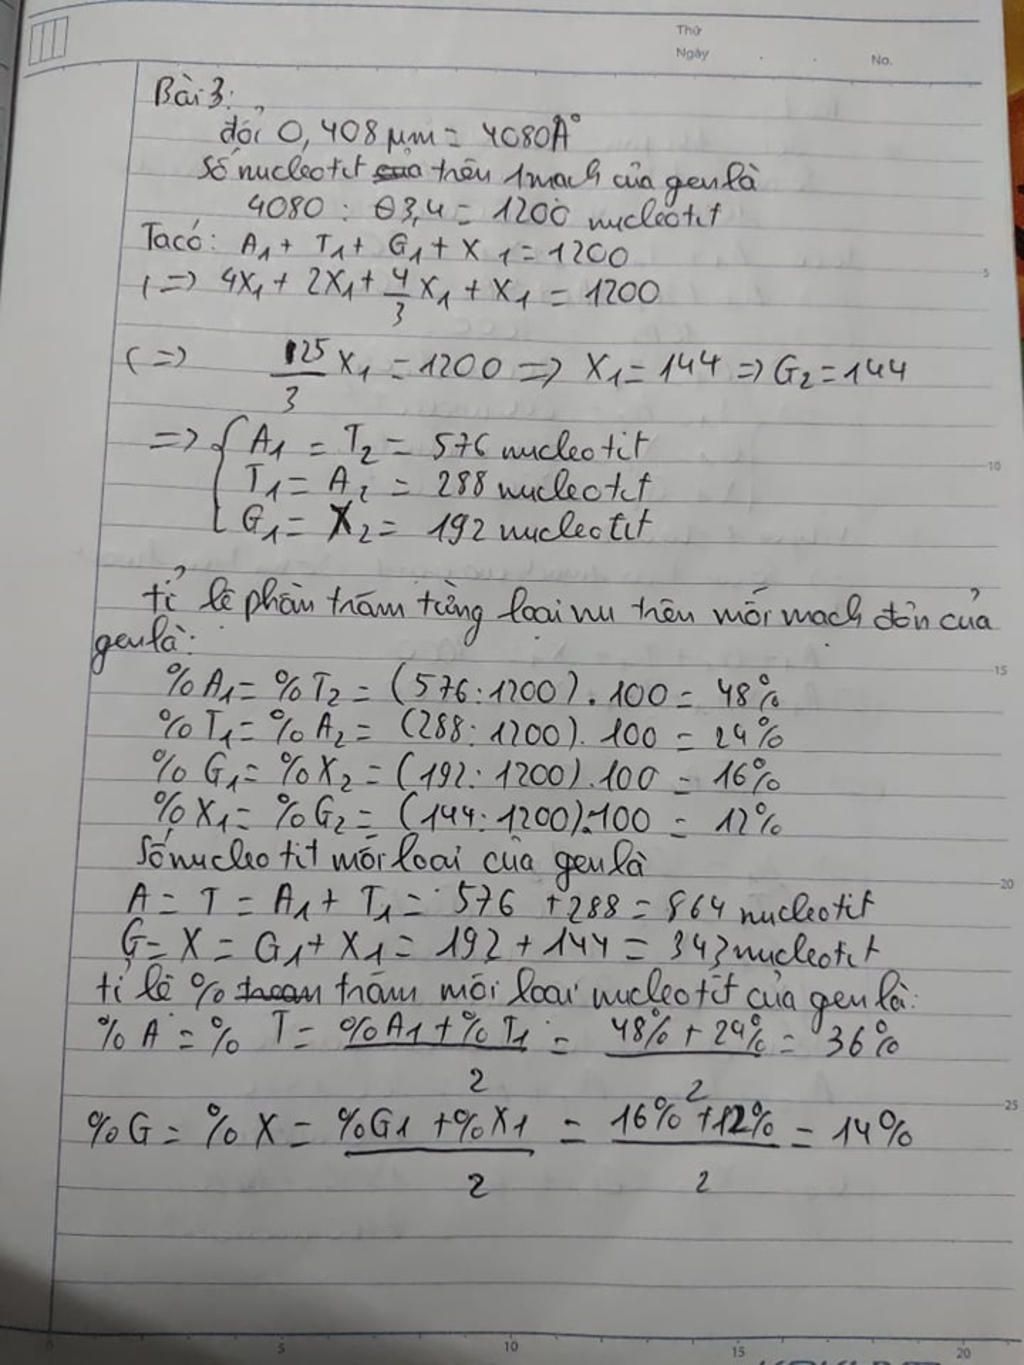 Thứ
Ngày
No.
Bài 3:
đổi 0,408 μm = 4080A°
Số nucleotit của trên 1 mạch của gen là
4080 : 3,4 = 1200 nucleotit
Ta có: A1 + T1 + G1 + X1 = 1200
(=> 4X1 + 2X1 + 4/3 X1 + X1 = 1200
(=> 25/3 X1 = 1200 => X1 = 144 => G2 = 144
=> { A1 = T2 = 576 nucleotit
T1 = A2 = 288 nucleotit
G1 = X2 = 192 nucleotit
tỉ lệ phần trăm từng loại nu trên mỗi mạch đơn của
gen là:
% A1 = % T2 = (576 : 1200) . 100 = 48%
% T1 = % A2 = (288 : 1200) . 100 = 24%
% G1 = % X2 = (192 : 1200) . 100 = 16%
% X1 = % G2 = (144 : 1200) . 100 = 12%
Số nucleotit mỗi loại của gen là
A = T = A1 + T1 = 576 + 288 = 864 nucleotit
G = X = G1 + X1 = 192 + 144 = 343 nucleotit
tỉ lệ % trăm mỗi loại nucleotit của gen là:
% A = % T = %A1 + %T1 / 2 = 48% + 24% / 2 = 36%
% G = % X = %G1 + %X1 / 2 = 16% + 12% / 2 = 14%
5
10
15
20
25
0
5
10
15
20